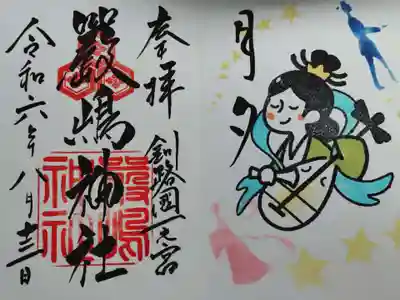 奉拝
釧路國一之宮
嚴嶋神社
嚴嶋神社
令和六年八月十三日
月夕